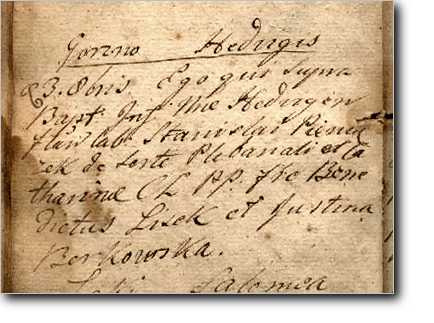 Gorzno Hedvigis
23. 8bris Ego qui supra
Bapt. Inf. Nne Hedvigen
fil. lab. Stanislai Pienia
zek de Sorte Plebanali et Ca
tharinae CL PP. fre Bene
dictus Lisek et Justina
Borkowska.
Salomea